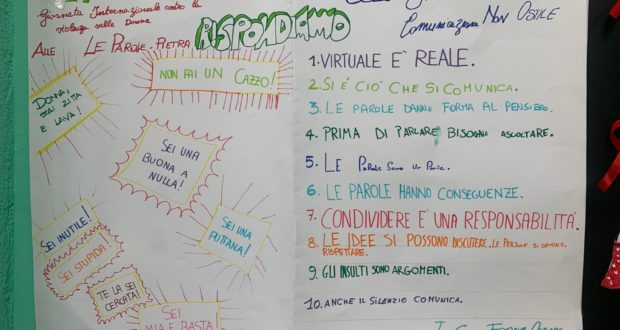 Giornata Internazionale contro la
violenza sulle Donne
ALLE LE PAROLE-PIETRA RISPONDIAMO
NON FAI UN CAZZO!
DONNA,
STAI ZITTA
E LAVA!
SEI UNA
BUONA A
NULLA!
SEI UNA
PUTTANA!
SEI INUTILE!
SEI STUPIDA!
TE LA SEI
CERCATA!
SEI
MIA E BASTA!
Comunicazione Non Ostile
1. VIRTUALE È REALE.
2. SI È CIÒ CHE SI COMUNICA.
3. LE PAROLE DANNO FORMA AL PENSIERO.
4. PRIMA DI PARLARE BISOGNA ASCOLTARE.
5. LE Parole Sono un Ponte.
6. LE PAROLE HANNO CONSEGUENZE.
7. CONDIVIDERE È UNA RESPONSABILITÀ.
8. LE IDEE SI POSSONO DISCUTERE. LE PERSONE SI DEVONO
RISPETTARE.
9. GLI INSULTI SONO ARGOMENTI.
10. ANCHE IL SILENZIO COMUNICA.